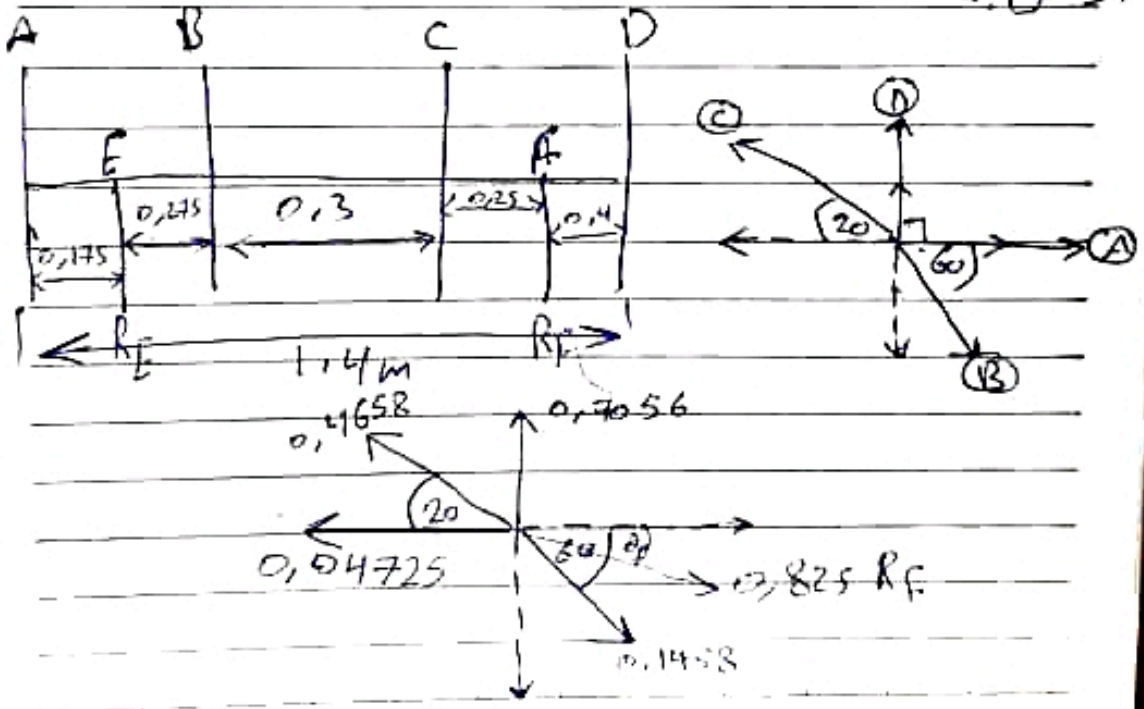 A B C D
E F
0,175 0,275 0,3 0,25 0,4
R_E R_F
1,4 m
C D
20 60 A
B
0,4658 0,7056
20 60
0,04725 0,825 R_F
0,1458